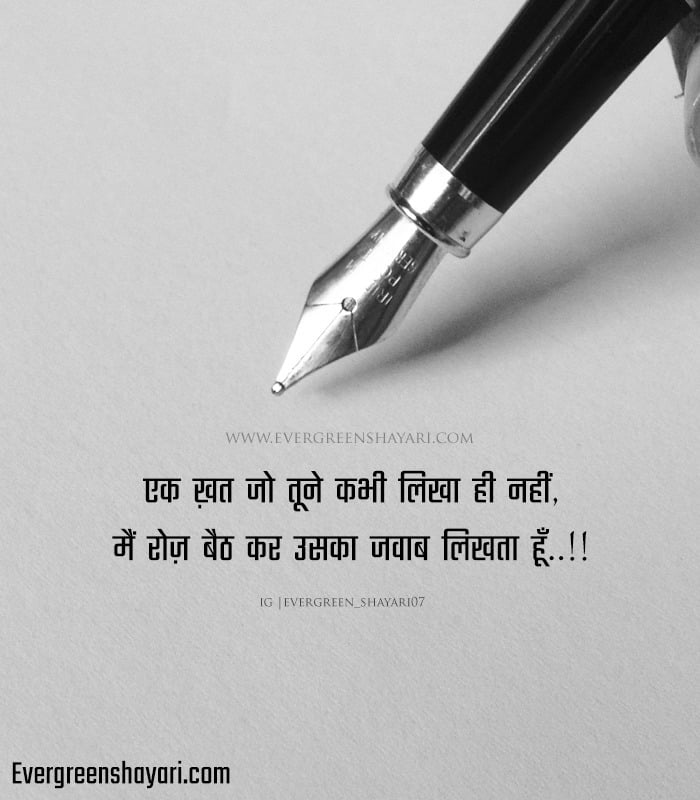 WWW.EVERGREENSHAYARI.COM
एक ख़त जो तूने कभी लिखा ही नहीं,
मैं रोज़ बैठ कर उसका जवाब लिखता हूँ..!!
IG |EVERGREEN_SHAYARI07
Evergreenshayari.com